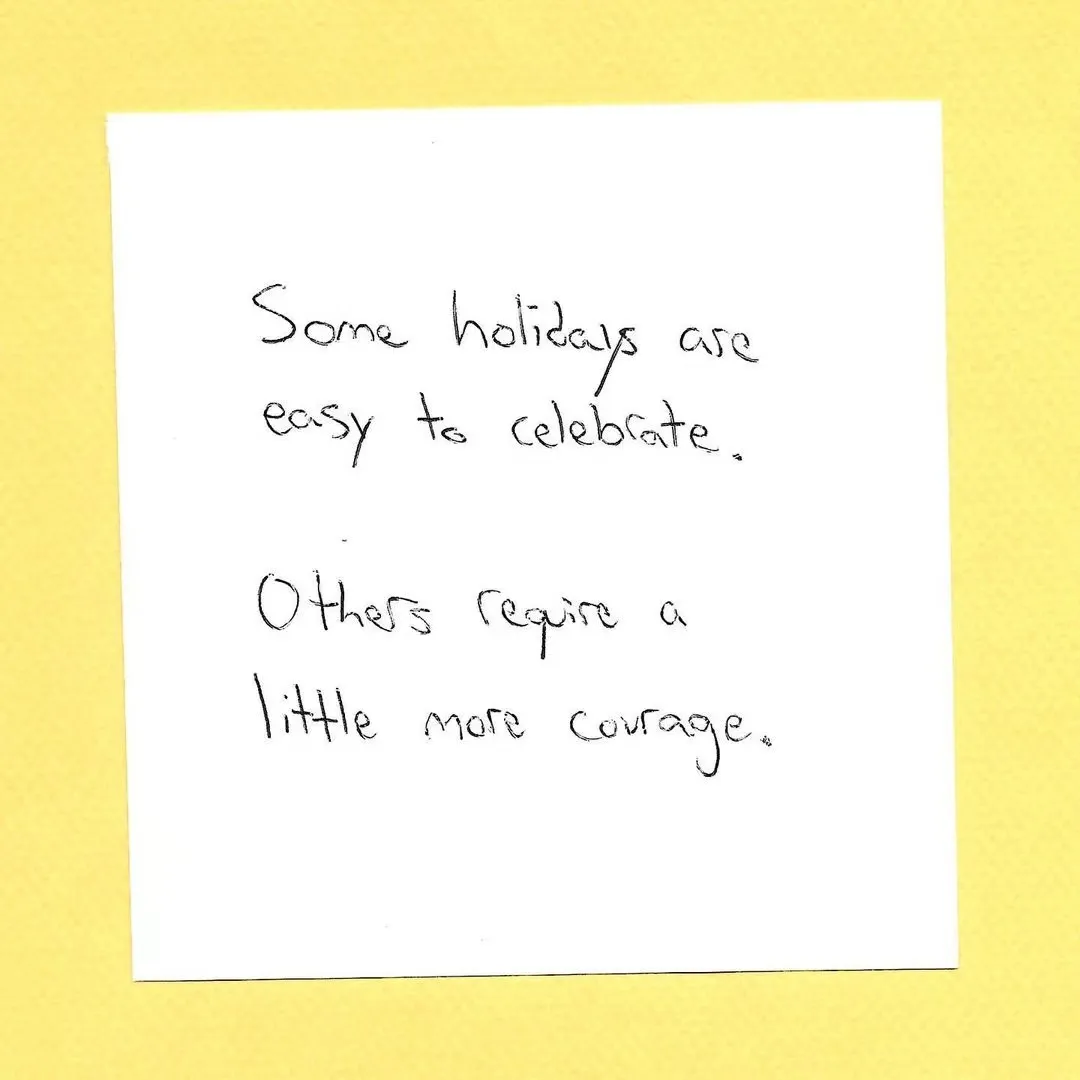 Some holidays are
easy to celebrate.
Others require a
little more courage.